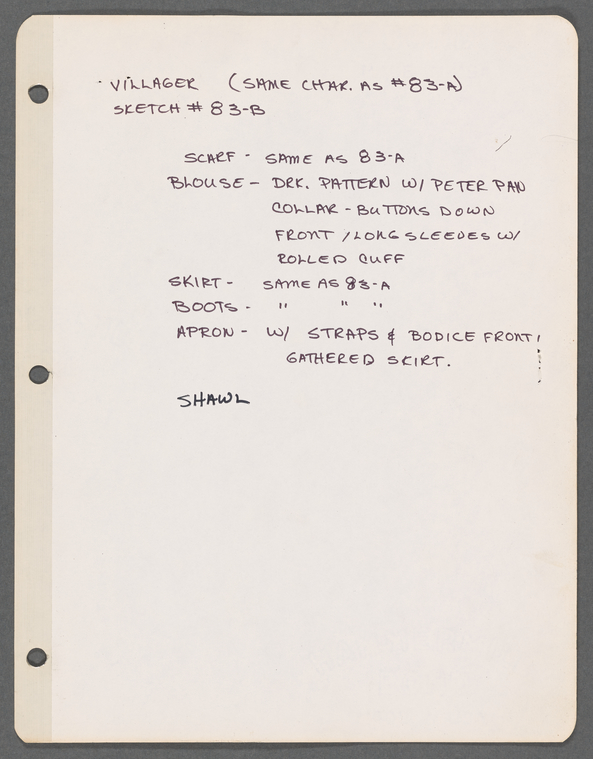 · VILLAGER (SAME CHAR. AS #83-A)
SKETCH # 83-B
SCARF - SAME AS 83-A
BLOUSE - DRK. PATTERN W/ PETER PAN
COLLAR - BUTTONS DOWN
FRONT / LONG SLEEVES W/
ROLLED CUFF
SKIRT - SAME AS 83-A
BOOTS - " " "
APRON - W/ STRAPS & BODICE FRONT,
GATHERED SKIRT.
SHAWL